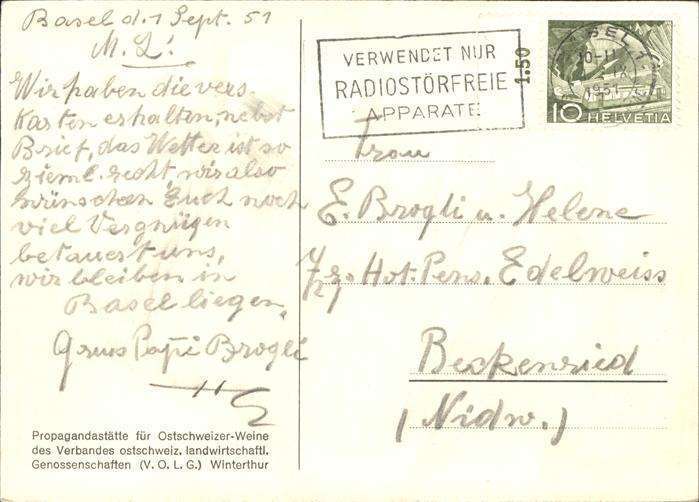 Basel d. 1 Sept. 51
M. L!
Wir haben die vers.
Karten erhalten, nebst
Brief, das Wetter ist so
zieml. recht, wir also
wünschen Euch noch
viel Vergnügen
betauert uns,
wir bleiben in
Basel liegen.
Gruss Papi Brogli
Propagandastätte für Ostschweizer-Weine
des Verbandes ostschweiz. landwirtschaftl.
Genossenschaften (V. O. L. G.) Winterthur
VERWENDET NUR
RADIOSTÖRFREIE
APPARATE
1.50
1951
10 HELVETIA
Frau
E. Brogli u. Helene
Hot. Pens. Edelweiss
Beckenried
(Nidw.)